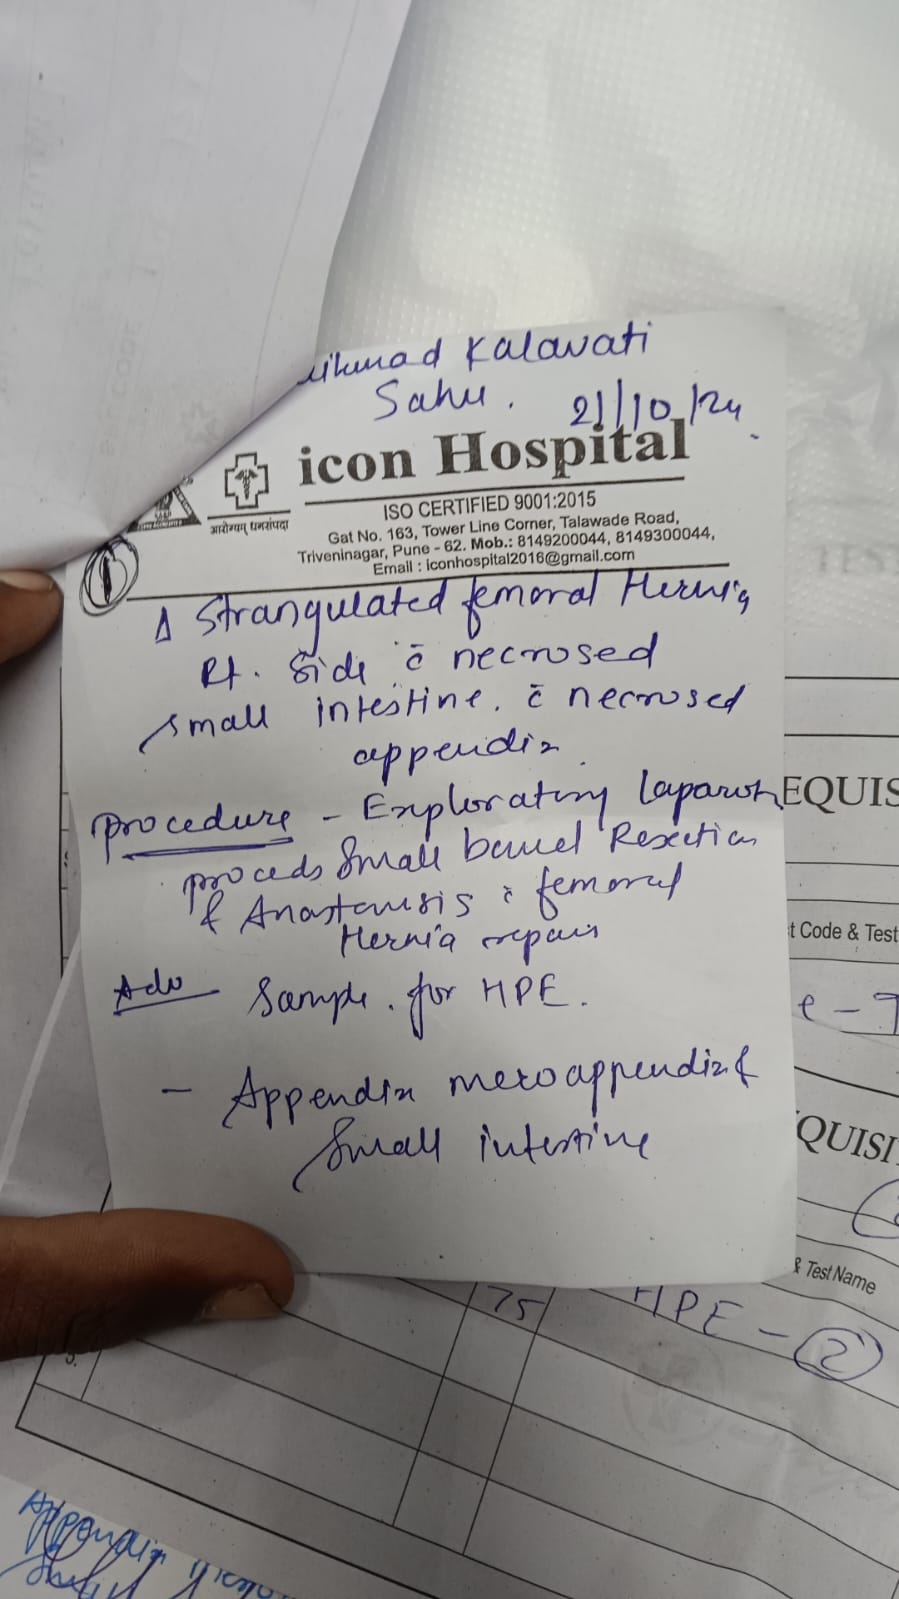 Kalavati
Sahu. 21/10/24
icon Hospital
ISO CERTIFIED 9001:2015
आरोग्यम् धनसंपदा
Gat No. 163, Tower Line Corner, Talawade Road,
Triveninagar, Pune - 62. Mob.: 8149200044, 8149300044,
Email : iconhospital2016@gmail.com
1
Δ Strangulated femoral Hernia
Rt. Side c̄ necrosed
small intestine. c̄ necrosed
appendix
procedure - Exploratory laparoto
proceds Small bowel Resection
& Anastomosis c̄ femoral
Hernia repair
Adv Sample. for HPE.
- Appendix mesoappendix &
Small intestine
EQUIS
t Code & Test
e - T
QUISI
& Test Name
75 HPE - 2
Appendix